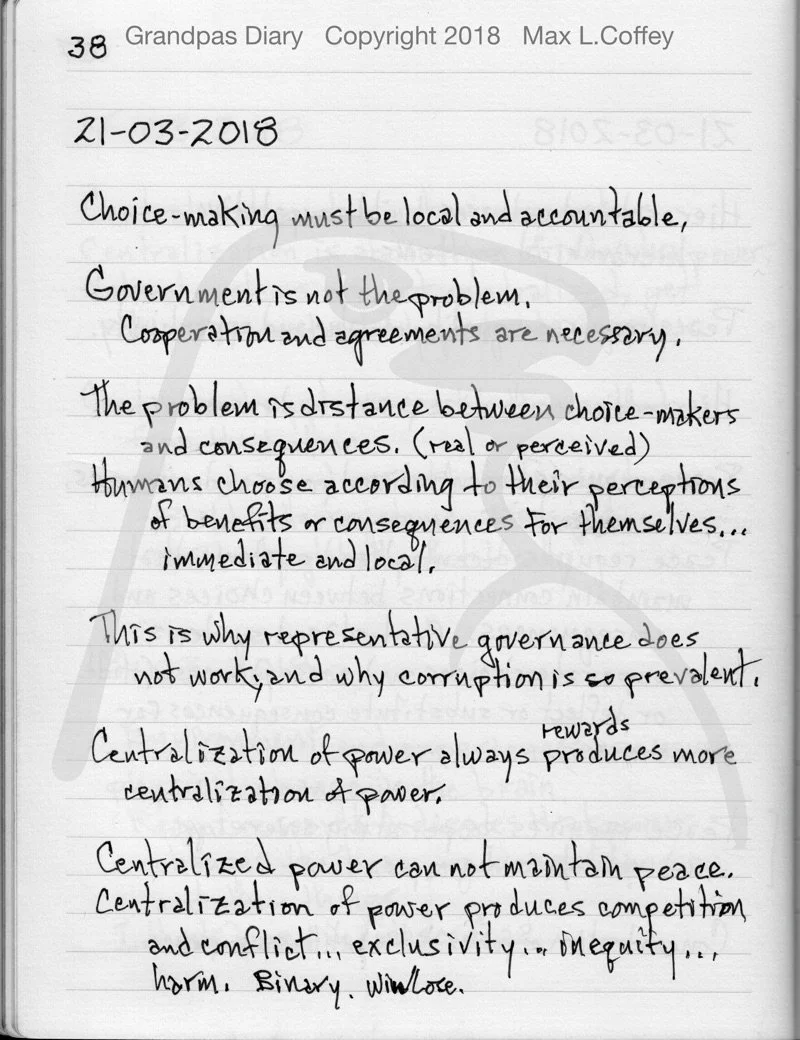 38 Grandpas Diary Copyright 2018 Max L.Coffey
21-03-2018
Choice-making must be local and accountable,
Government is not the problem.
Cooperation and agreements are necessary.
The problem is distance between choice-makers
and consequences. (real or perceived)
Humans choose according to their perceptions
of benefits or consequences for themselves...
immediate and local.
This is why representative governance does
not work, and why corruption is so prevalent.
rewards
Centralization of power always produces more
centralization of power.
Centralized power can not maintain peace.
Centralization of power produces competition
and conflict... exclusivity... inequity...
harm. Binary. Win/Lose.